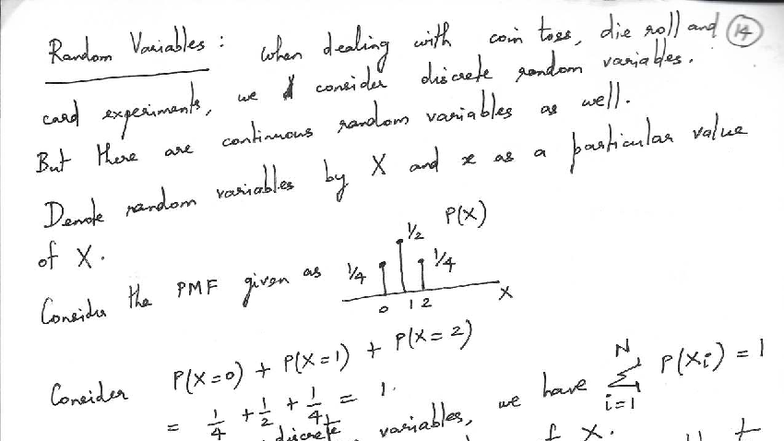 Random Variables : When dealing with coin toss, die roll and 14
card experiments, we consider discrete random variables.
But there are continuous random variables as well.
Denote random variables by X and x as a particular value
of X.
Consider the PMF given as 1/4 1/2 1/4 P(X)
0 1 2 X
Consider P(X=0) + P(X=1) + P(X=2)
= 1/4 + 1/2 + 1/4 = 1.
discrete variables, we have N Σ i=1 P(Xi) = 1
of X.